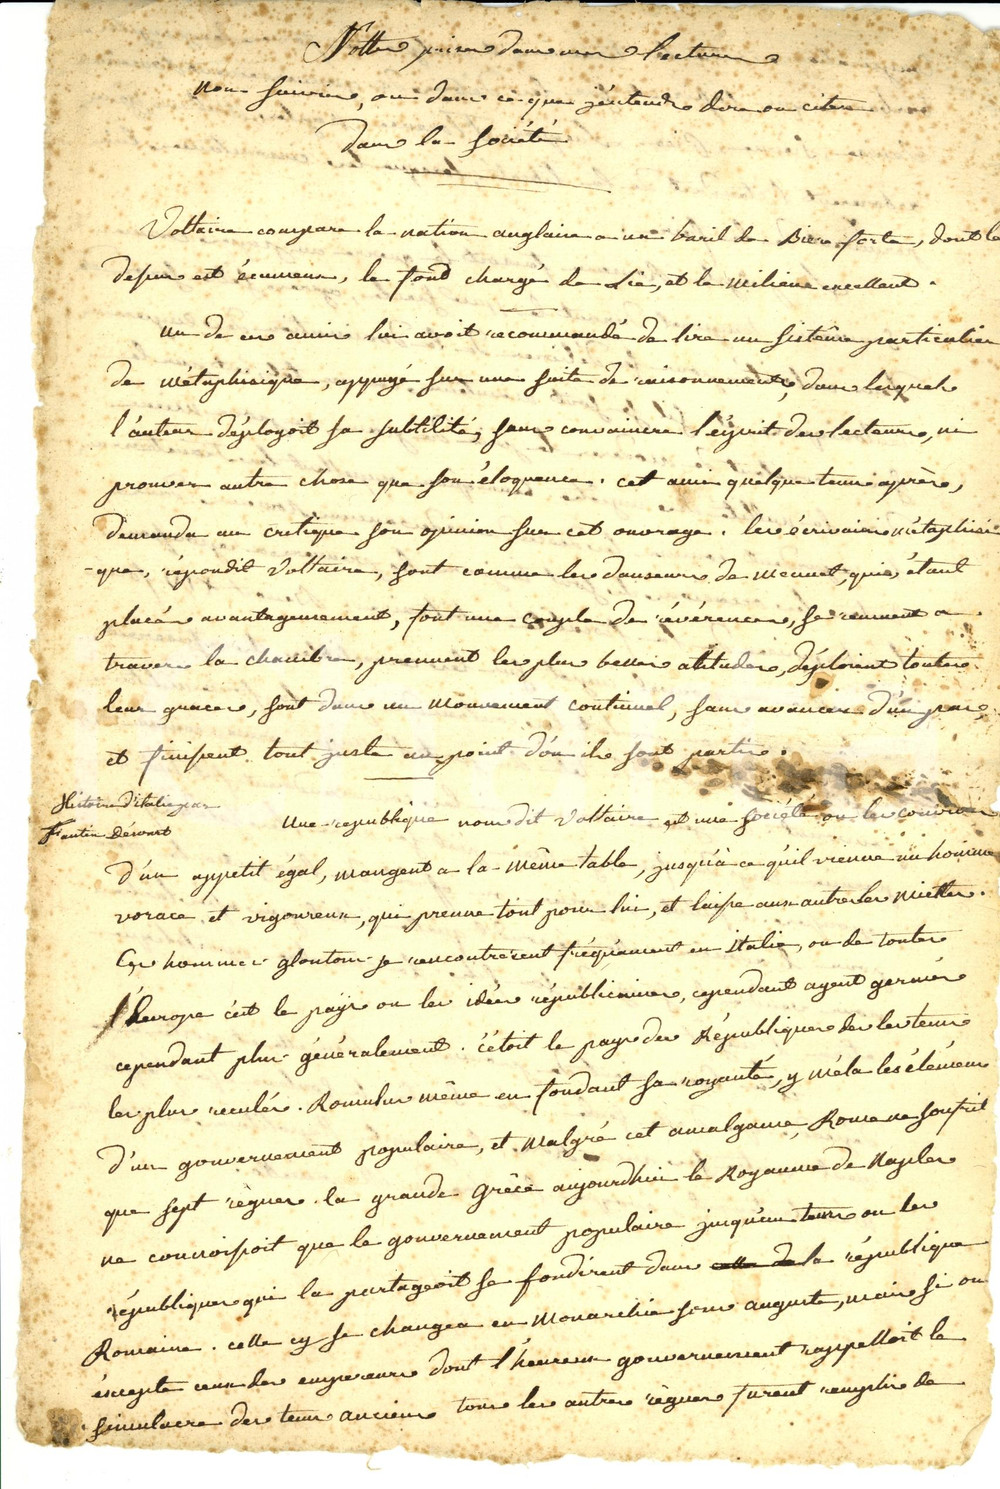 Nottes prises dans mes lectures
non suivies, ou dans ce que j'éntends dire ou citer
dans la société
Voltaire compare la nation anglaise a un baril de Biere forte, dont le
dessus est écumeux, le fond chargé de Lie, et le milieu excellent.
un de ses amis lui avoit recommandé de lire un sistême particulier
de métaphisique, appuyé sur une suite de raisonnements, dans lesquels
l'auteur déployoit sa subtilité, sans convaincre l'ésprit des lecteurs, ni
prouver autre chose que son éloquence. cet ami quelque tems après,
demanda au critique son opinion sur cet ouvrage. les écrivains métaphisi-
-ques, répondit Voltaire, sont comme les danseurs de Menuet, qui, étant
placés avantageusement, font une couple de révérences, se remuent a
travers la chambre, prennent les plus belles atitudes, déploient toutes
leurs graces, sont dans un mouvement continuel, sans avancer d'un pas,
et finissent tout juste au point d'ou ils sont partis.
Histoire d'italie par
Fantin Désoart
Une republique nous dit Voltaire est une société ou les convives
d'un appetit égal, mangent a la même table, jusqu'à ce qu'il vienne un homme
vorace et vigoureux, qui prenne tout pour lui, et laisse aux autres les miettes.
Ces hommes gloutons se rencontrerent fréquament en italie, ou de toute
l'Europe c'est le païs ou les idées républicaines, cependant ayent germées
cependant plus généralement. c'étoit le pays des Républiques des les tems
les plus reculés. Romulus même en fondant sa royauté, y mêla les élémens
d'un gouvernement populaire, et malgré cet amalgame, Rome ne souffrit
que sept règnes. la grande Grèce aujourdhui le Royaume de Naples
ne connoissoit que le gouvernement populaire jusqu'au tems ou les
républiques qui la partageoit se fondirent dans la république
Romaine. celle cy se changea en Monarchie sous auguste, mais si on
éxcepte ceux des empereurs dont l'heureux gouvernement rappelloit le
simulacre des tems anciens tous les autres règnes furent remplis de